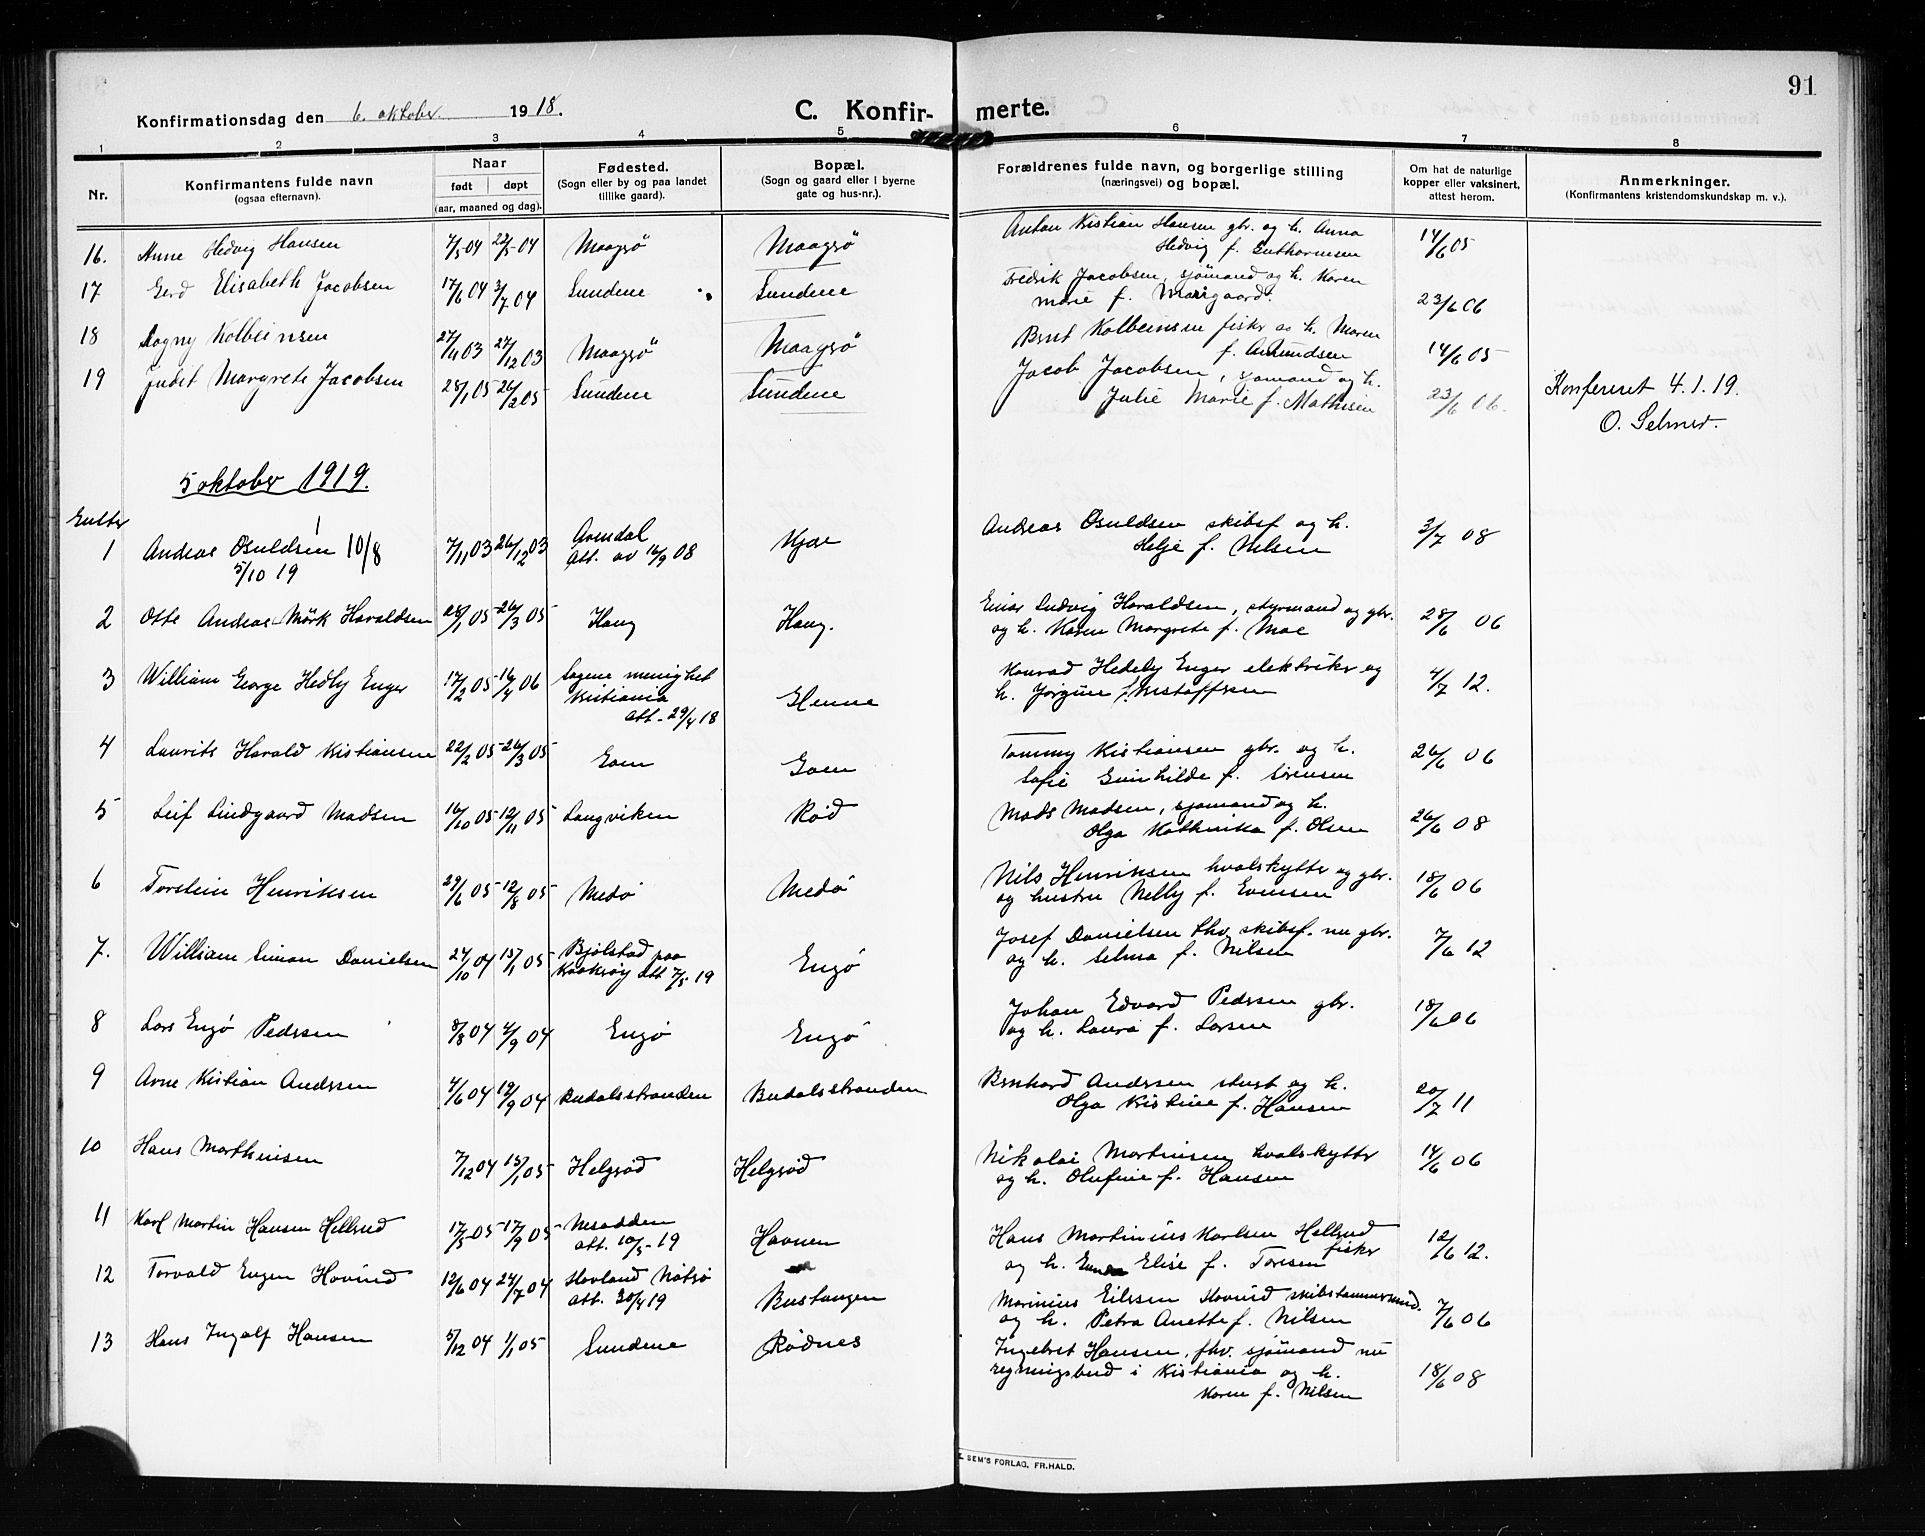 91
Konfirmationsdag den 6. oktober 1918.
C. Konfirmerte.
1 2 3 4 5 6 7 8
Nr.
Konfirmantens fulde navn
(ogsaa efternavn).
Naar
født døpt
(aar, maaned og dag).
Fødested.
(Sogn eller by og paa landet
tillike gaard).
Bopæl.
(Sogn og gaard eller i byerne
gate og hus-nr.).
Forældrenes fulde navn, og borgerlige stilling
(næringsvei) og bopæl.
Om hat de naturlige
kopper eller vaksinert,
attest herom.
Anmerkninger.
(Konfirmantens kristendomskundskap m. v.).
16. Anne Hedvig Hansen 7/5 04 22/5 04 Maagerö Maagerö
Anton Kristian Hansen gbr. og h. Anna
Hedvig f. Guthormsen 14/6 05
17 Gerd Elisabeth Jacobsen 17/6 04 3/7 04 Sundene Sundene
Fredrik Jacobsen, sjømand og h. Karen
Marie f. 23/6 06
18 Dagny Kolbeinsen 27/11 03 27/12 03 Maagerö Maagerö
Bernt Kolbeinsen fisker og h. Maren
f. Amundsen 14/6 05
19 Judit Margrete Jacobsen 28/1 05 26/2 05 Sundene Sundene
Jacob Jacobsen, sjømand og h.
Julie Marie f. Mathisen 23/6 06.
Konfereret 4.1.19.
O. Selmer.
5 oktober 1919.
Gutter
1 Andreas Osuldsen 10/8 7/11 03 26/12 03 Arendal Kjær
5/10 19 Att. av 16/9 08
Andreas Osuldsen skibsf. og h.
Helje f. Nilsen 3/7 08
2 Otto Andreas Mörk Haraldsen 28/1 05 26/3 05 Haug Haug.
Einar Ludvig Haraldsen, styrmand og gbr.
og h. Karen Margrete f. Moe 28/6 06
3 William George Hedly Enger 17/2 05 16/4 06 Sagene menighet
Kristiania
att. 29/4 18 Glenne
Konrad Hedely Enger elektriker og
h. Jørgine f. Kristoffersen 4/7 12.
4 Laurits Harald Kristiansen 22/2 05 26/3 05 Goen Goen
Tommy Kristiansen gbr. og h.
Sofie Gunhilde f. Sörensen 26/6 06
5 Leif Lindgaard Madsen 16/10 05 12/11 05 Langviken Röd
Mads Madsen, sjømand og h.
Olga Kathinka f. Olsen 26/6 08
6 Torstein Henriksen 29/6 05 12/8 05 Medö Medö
Nils Henriksen hvalskytter og gbr.
og hustru Nelly f. Evensen 18/6 06
7. William Simon Danielsen 24/10 04 15/1 05 Bjölstad paa
Kraakeröy att 7/5 19 Engö
Josef Danielsen fhv. skibsf. nu gbr.
og h. Selma f. Nilsen 7/6 12
8 Lars Engö Pedersen 8/8 04 4/9 04 Engö Engö
Johan Edvard Pedersen gbr.
og h. Laura f. Larsen 18/6 06
9 Arne Kristian Andersen 4/6 04 19/9 04 Budalsstranden Budalsstranden
Bernhard Andersen stuert og h.
Olga Kristine f. Hansen 20/7 11
10 Hans Marthinsen 7/12 04 15/1 05 Helgeröd Helgeröd
Nikolai Martinsen hvalskytter
og h. Olufine f. Hansen 14/6 06
11 Karl Martin Hansen Hellerud 17/5 05 17/9 05 Nesodden
att. 10/5 19 Havnen
Hans Martinius Karlsen Hellerud
fisker
og h. Elise f. Toresen 12/6 12.
12 Torvald Eugen Hovind 12/6 04 24/7 04 Hovland Nötterö
att. 30/4 19 Bustangen
Marinius Eilesen Hovind skibstømmermand.
og h. Petra Anette f. Nilsen 7/6 06
13 Hans Ingolf Hansen 5/12 04 1/1 05 Sundene Rödnes
Ingebret Hansen, fhv. sjømand nu
regningsbud i Kristiania og h.
Karen f. Nilsen 18/6 08
SEM'S FORLAG, FR.HALD.